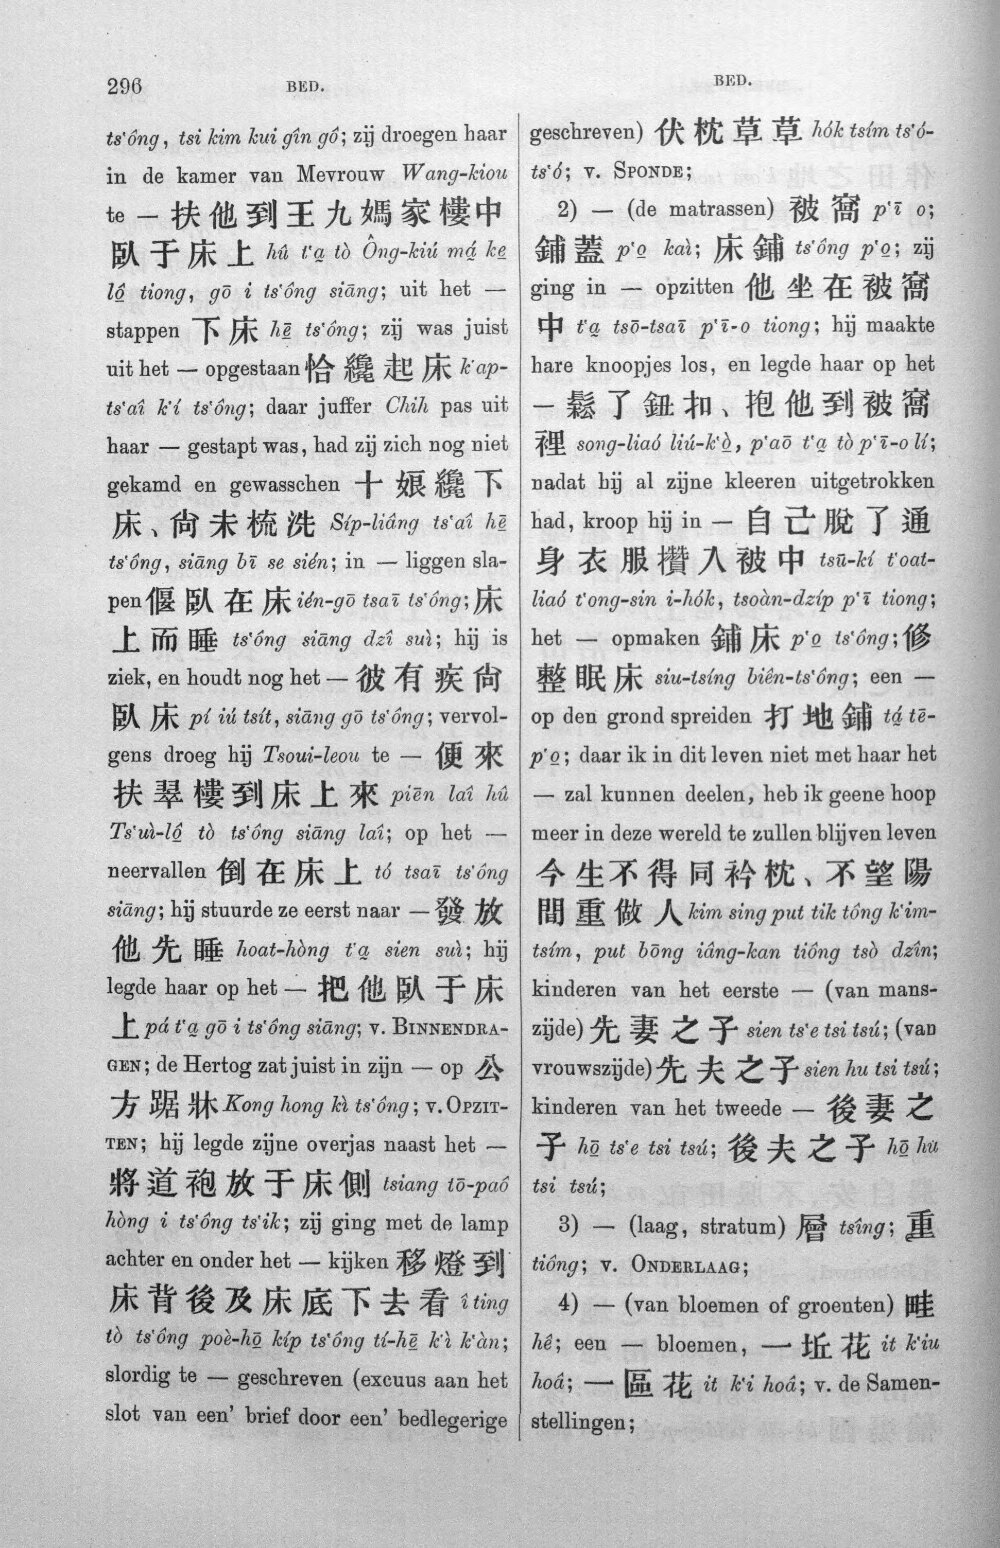 296
BED.
ts‘ông, tsi kim kui gîn gố; zij droegen haar
in de kamer van Mevrouw Wang-kiou
te — 扶他到王九媽家樓中
臥于床上 hû t‘a̤ tò Ông-kiú má̤ ke̤
lộ tiong, gō i ts‘ông siāng; uit het —
stappen 下床 hē̤ ts‘ông; zij was juist
uit het — opgestaan 恰纔起床 k‘ap-
ts‘aî k‘í ts‘ông; daar juffer Chih pas uit
haar — gestapt was, had zij zich nog niet
gekamd en gewasschen 十娘纔下
床、尙未梳洗 Síp-liâng ts‘aî hē̤
ts‘ông, siāng bī se sién; in — liggen sla-
pen 偃臥在床 ién-gō tsaī ts‘ông; 床
上而睡 ts‘ông siāng dzî suì; hij is
ziek, en houdt nog het — 彼有疾尙
臥床 pí iú tsít, siāng gō ts‘ông; vervol-
gens droeg hij Tsoui-leou te — 便來
扶翠樓到床上來 piēn laî hû
Ts‘uì-lộ tò ts‘ông siāng laî; op het —
neervallen 倒在床上 tó tsaī ts‘ông
siāng; hij stuurde ze eerst naar — 發放
他先睡 hoat-hòng t‘a̤ sien suì; hij
legde haar op het — 把他臥于床
上 pá t‘a̤ gō i ts‘ông siāng; v. BINNENDRA-
GEN; de Hertog zat juist in zijn — op 公
方踞牀 Kong hong kì ts‘ông; v. OPZIT-
TEN; hij legde zijne overjas naast het —
將道袍放于床側 tsiang tō-paô
hòng i ts‘ông ts‘ik; zij ging met de lamp
achter en onder het — kijken 移燈到
床背後及床底下去看 î ting
tò ts‘ông poè-hō̤ kíp ts‘ông tí-hē̤ k‘ì k‘àn;
slordig te — geschreven (excuus aan het
slot van een’ brief door een’ bedlegerige
BED.
geschreven) 伏枕草草 hók tsím ts‘ó-
ts‘ó; v. SPONDE;
2) — (de matrassen) 被窩 p‘ī o;
鋪蓋 p‘o̤ kaì; 床鋪 ts‘ông p‘o̤; zij
ging in — opzitten 他坐在被窩
中 t‘a̤ tsō-tsaī p‘ī-o tiong; hij maakte
hare knoopjes los, en legde haar op het
— 鬆了鈕扣、抱他到被窩
裡 song-liaó liú-k‘ò̤, p‘aō t‘a̤ tò p‘ī-o lí;
nadat hij al zijne kleeren uitgetrokken
had, kroop hij in — 自己脫了通
身衣服攢入被中 tsū-kí t‘oat-
liaó t‘ong-sin i-hók, tsoàn-dzíp p‘ī tiong;
het — opmaken 鋪床 p‘o̤ ts‘ông; 修
整眠床 siu-tsíng biên-ts‘ông; een —
op den grond spreiden 打地鋪 tá̤ tē-
p‘o̤; daar ik in dit leven niet met haar het
— zal kunnen deelen, heb ik geene hoop
meer in deze wereld te zullen blijven leven
今生不得同衿枕、不望陽
間重做人 kim sing put tik tông k‘im-
tsím, put bōng iâng-kan tiông tsò dzîn;
kinderen van het eerste — (van mans-
zijde) 先妻之子 sien ts‘e tsi tsú; (van
vrouwszijde) 先夫之子 sien hu tsi tsú;
kinderen van het tweede — 後妻之
子 hō̤ ts‘e tsi tsú; 後夫之子 hō̤ hu
tsi tsú;
3) — (laag, stratum) 層 tsîng; 重
tiông; v. ONDERLAAG;
4) — (van bloemen of groenten) 畦
hê; een — bloemen, 一坵花 it k‘iu
hoâ; 一區花 it k‘i hoâ; v. de Samen-
stellingen;